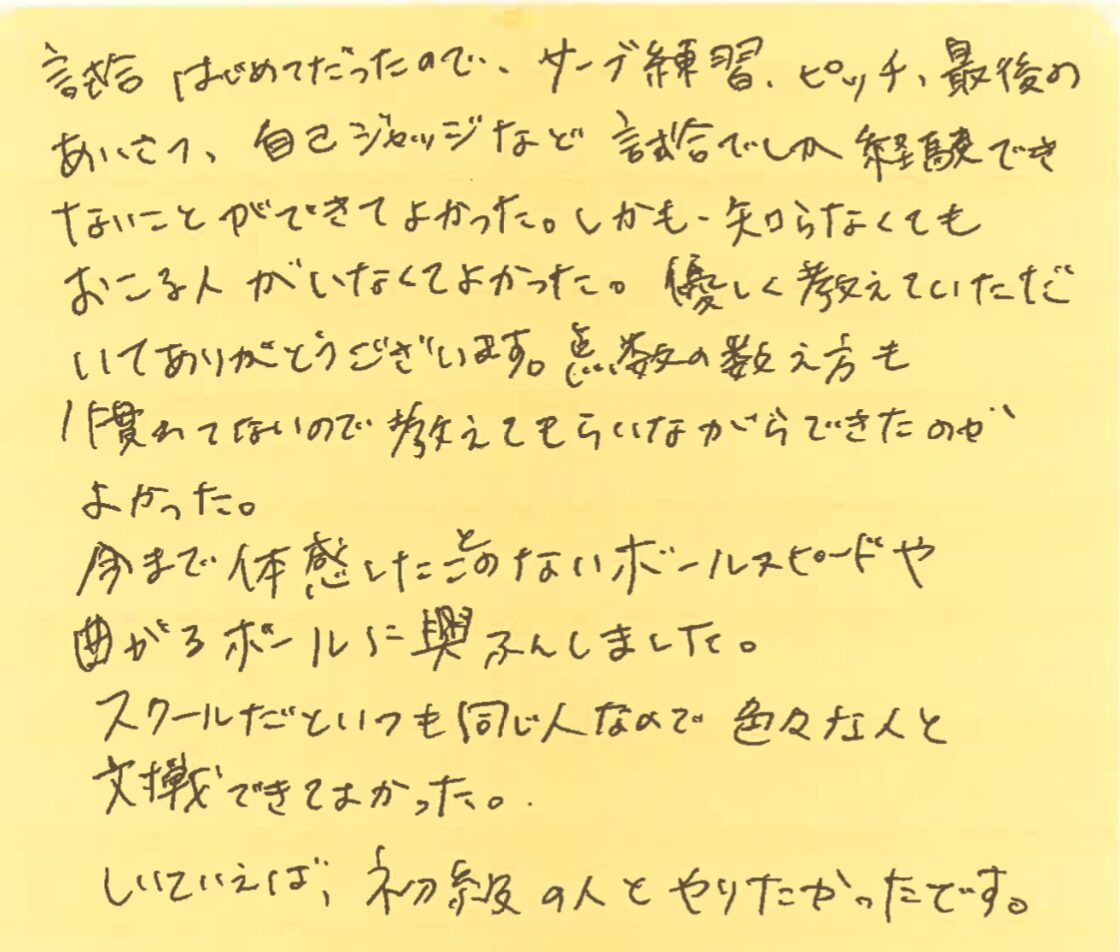 試合はじめてだったので、サーブ練習、ピッチ、最後の
あいさつ、自己ジャッジなど試合でしか経験でき
ないことができてよかった。しかも、知らなくても
おこる人がいなくてよかった。優しく教えていただ
いてありがとうございます。点数の数え方も
慣れてないので教えてもらいながらできたのが
よかった。
今まで体感したことのないボールスピードや
曲がるボールに興ふんしました。
スクールだといつも同じ人なので色々な人と
対戦できてよかった。
しいていえば、初級の人とやりたかったです。